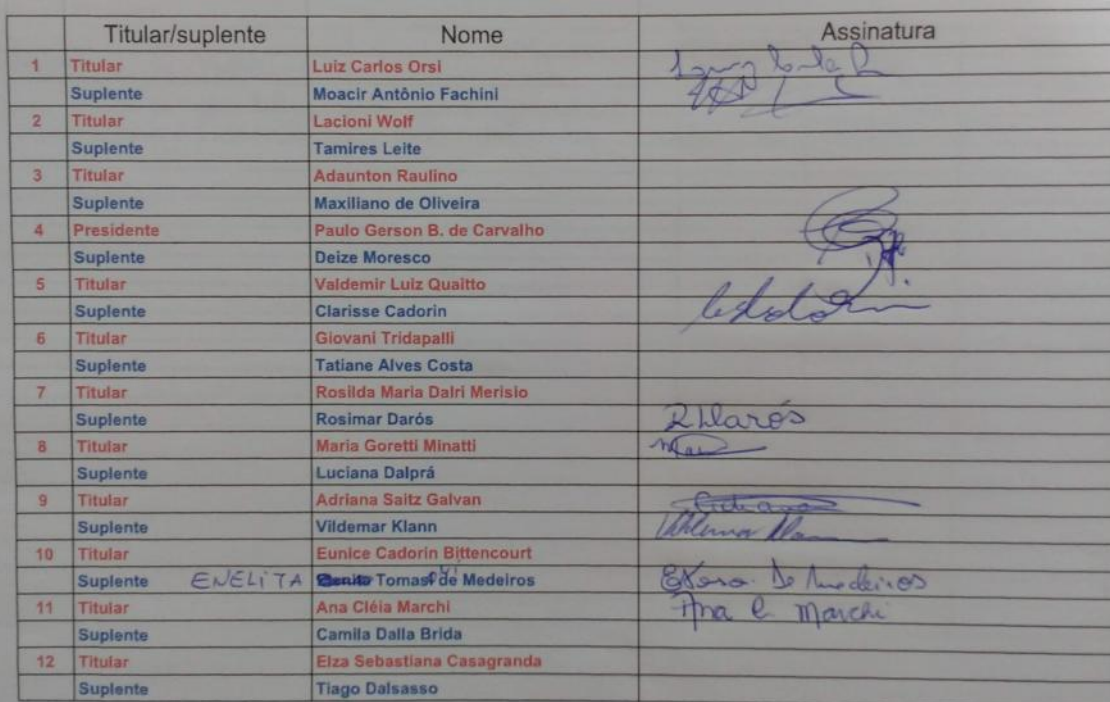 Titular/suplente Nome Assinatura
1 Titular Luiz Carlos Orsi
Suplente Moacir Antônio Fachini
2 Titular Lacioni Wolf
Suplente Tamires Leite
3 Titular Adaunton Raulino
Suplente Maxiliano de Oliveira
4 Presidente Paulo Gerson B. de Carvalho
Suplente Deize Moresco
5 Titular Valdemir Luiz Quaitto
Suplente Clarisse Cadorin
6 Titular Giovani Tridapalli
Suplente Tatiane Alves Costa
7 Titular Rosilda Maria Dalri Merisio
Suplente Rosimar Darós
8 Titular Maria Goretti Minatti
Suplente Luciana Dalprá
9 Titular Adriana Saitz Galvan
Suplente Vildemar Klann
10 Titular Eunice Cadorin Bittencourt
Suplente ENELITA Tomasi de Medeiros De Medeiros
11 Titular Ana Cléia Marchi Ana C. Marchi
Suplente Camila Dalla Brida
12 Titular Elza Sebastiana Casagranda
Suplente Tiago Dalsasso